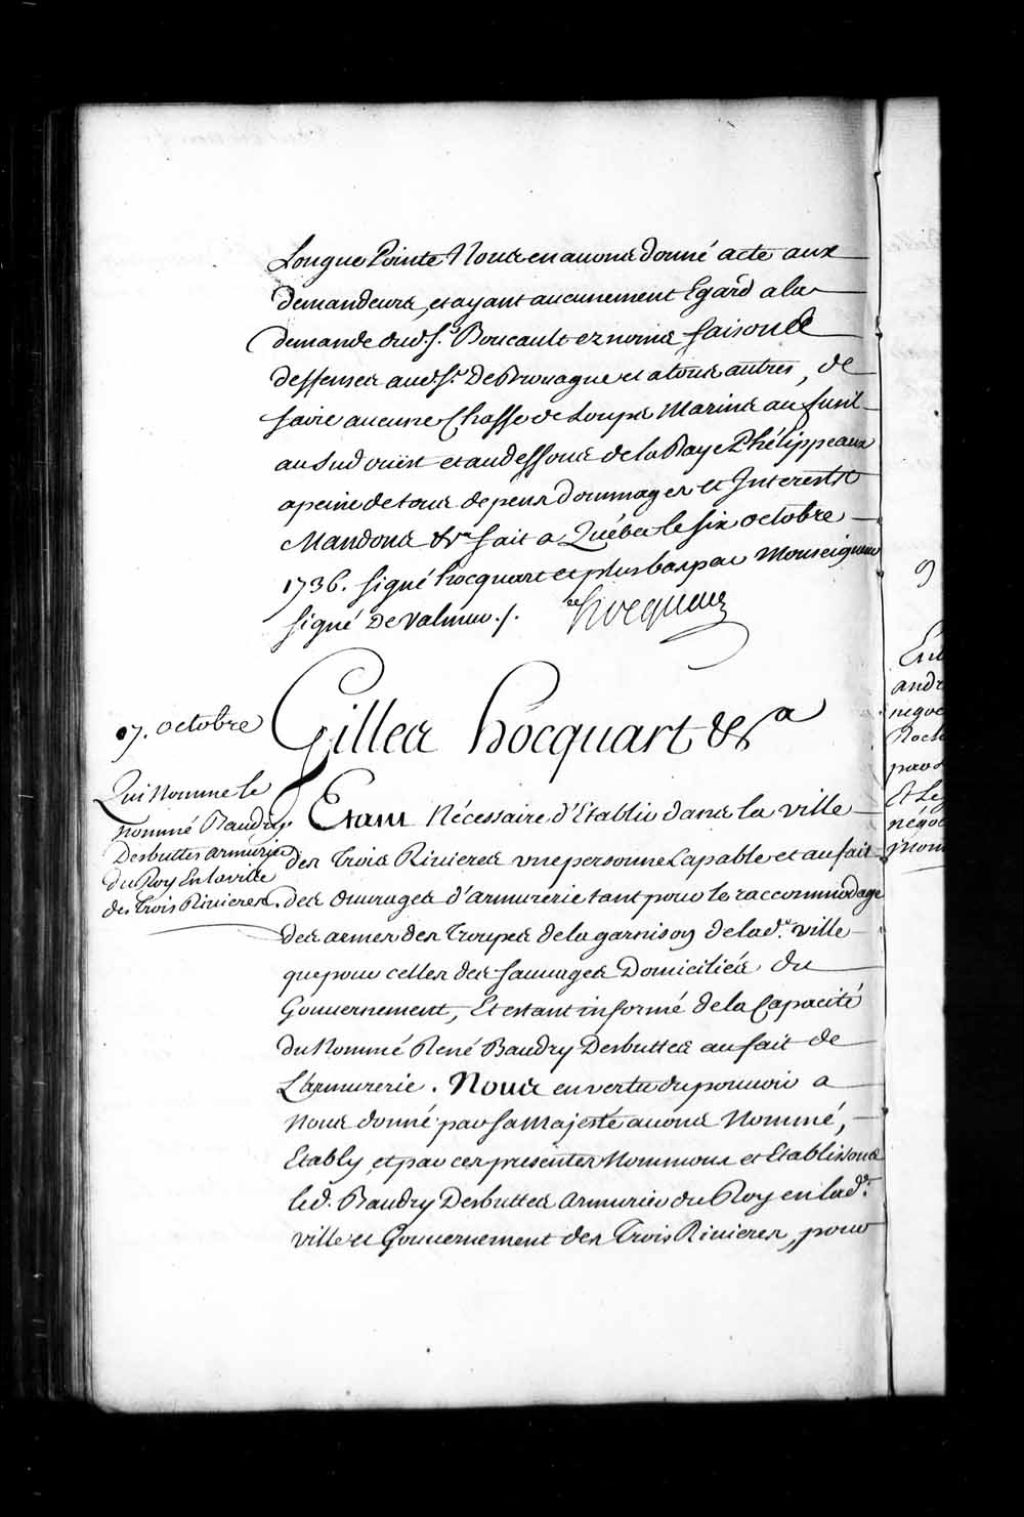 Longue Pointe Nous en avons donné acte aux
demandeurs, et ayant aucunement Egard a la
demande dud. Sr. Boucault ez noms faisons
deffenses aud. Sr. DeBrouague et a tous autres, de
faire aucune Chasse de Loups Marins au fusil
au Sud ouëst et au dessous de la Baye Phélippeaux
a peine de tous depens Dommages et Interests
Mandons &ra fait a Québec le six octobre
1736. signé hocquart et plus bas par Monseigneur
signé De Valmur ./. hocquart
07. octobre
Gilles hocquart &ra
Qui Nomme le
nommé Baudry
Desbuttes armurier
du Roy En la ville
des trois Rivieres.
Etant Nécessaire d'Etablir dans la ville
des trois Rivieres une personne Capable et au fait
des Ouvrages d'armurerie tant pour le raccommodage
des armes des troupes de la garnison de lad.e ville
que pour celles des Sauvages Domiciliés du
Gouvernement, Et estant informé de la Capacité
du Nommé René Baudry Desbuttes au fait de
L'armurerie. Nous en vertu du pouvoir a
nous donné par sa Majesté avons Nommé,
Etably, et par ces presentes Nommons et Etablissons
led. Baudry Desbuttes armurier du Roy en lad.e
ville et Gouvernement des trois Rivieres, pour
andr
negoc
negoc